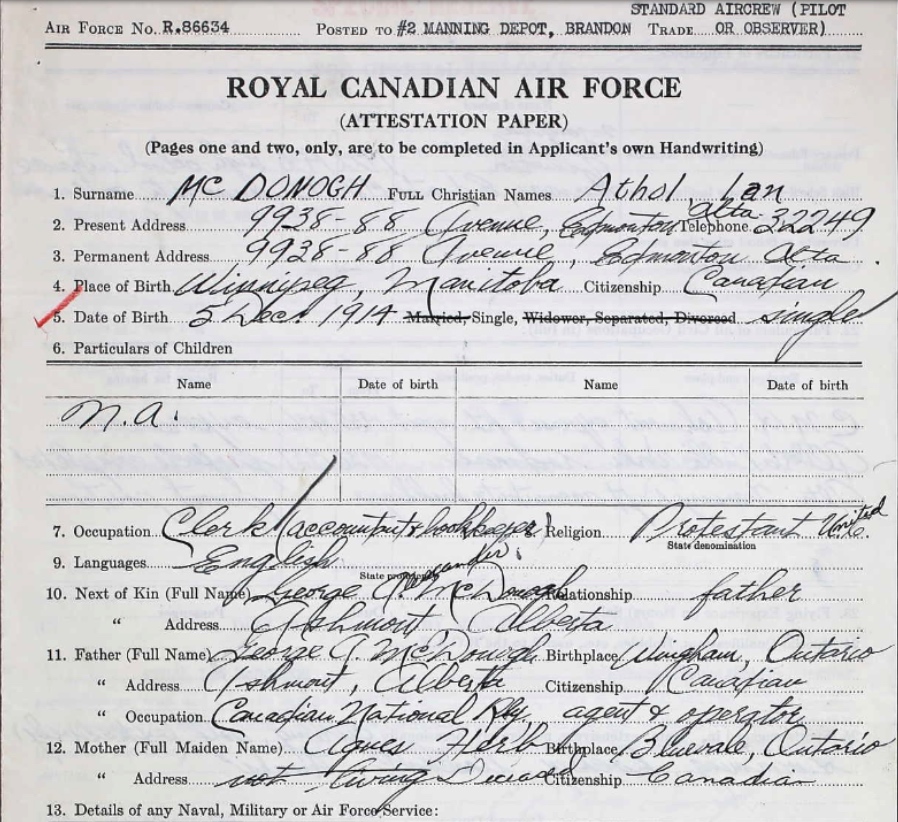 STANDARD AIRCREW (PILOT
AIR FORCE No. R.86634 POSTED TO #2 MANNING DEPOT, BRANDON TRADE OR OBSERVER)
ROYAL CANADIAN AIR FORCE
(ATTESTATION PAPER)
(Pages one and two, only, are to be completed in Applicant's own Handwriting)
1. Surname Mc DONOGH FULL Christian Names Athol Ian
2. Present Address 9938-88 Avenue, Edmonton, Alta. Telephone 32249
3. Permanent Address 9938-88 Avenue, Edmonton Alta
4. Place of Birth Winnipeg, Manitoba Citizenship Canadian
5. Date of Birth 5 Dec. 1914 Married, Single, Widower, Separated, Divorced single
6. Particulars of Children
Name Date of birth Name Date of birth
N.A.
7. Occupation Clerk (accountant & bookkeeper) 8. Religion Protestant United
State denomination
9. Languages English
State proficiency
10. Next of Kin (Full Name) George Alexander McDonogh Relationship father
" Address Ashmont Alberta
11. Father (Full Name) George A. McDonogh Birthplace Wingham, Ontario
" Address Ashmont, Alberta Citizenship Canadian
" Occupation Canadian National Rly. agent & operator
12. Mother (Full Maiden Name) Agnes Herb Birthplace Bluevale, Ontario
" Address not living Deceased Citizenship Canadian
13. Details of any Naval, Military or Air Force Service: